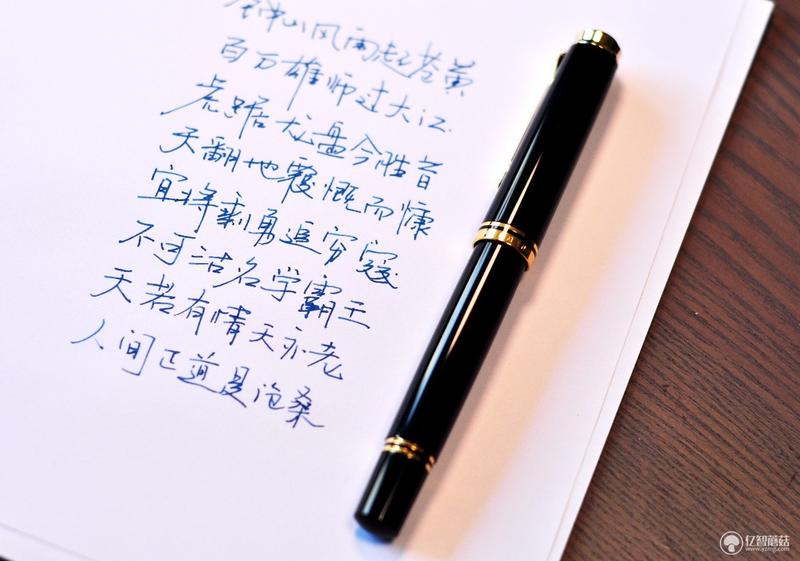 钟山风雨起苍黄
百万雄师过大江.
虎踞龙盘今胜昔
天翻地覆慨而慷
宜将剩勇追穷寇
不可沽名学霸王
天若有情天亦老
人间正道是沧桑
亿智蘑菇
www.yzmg.com